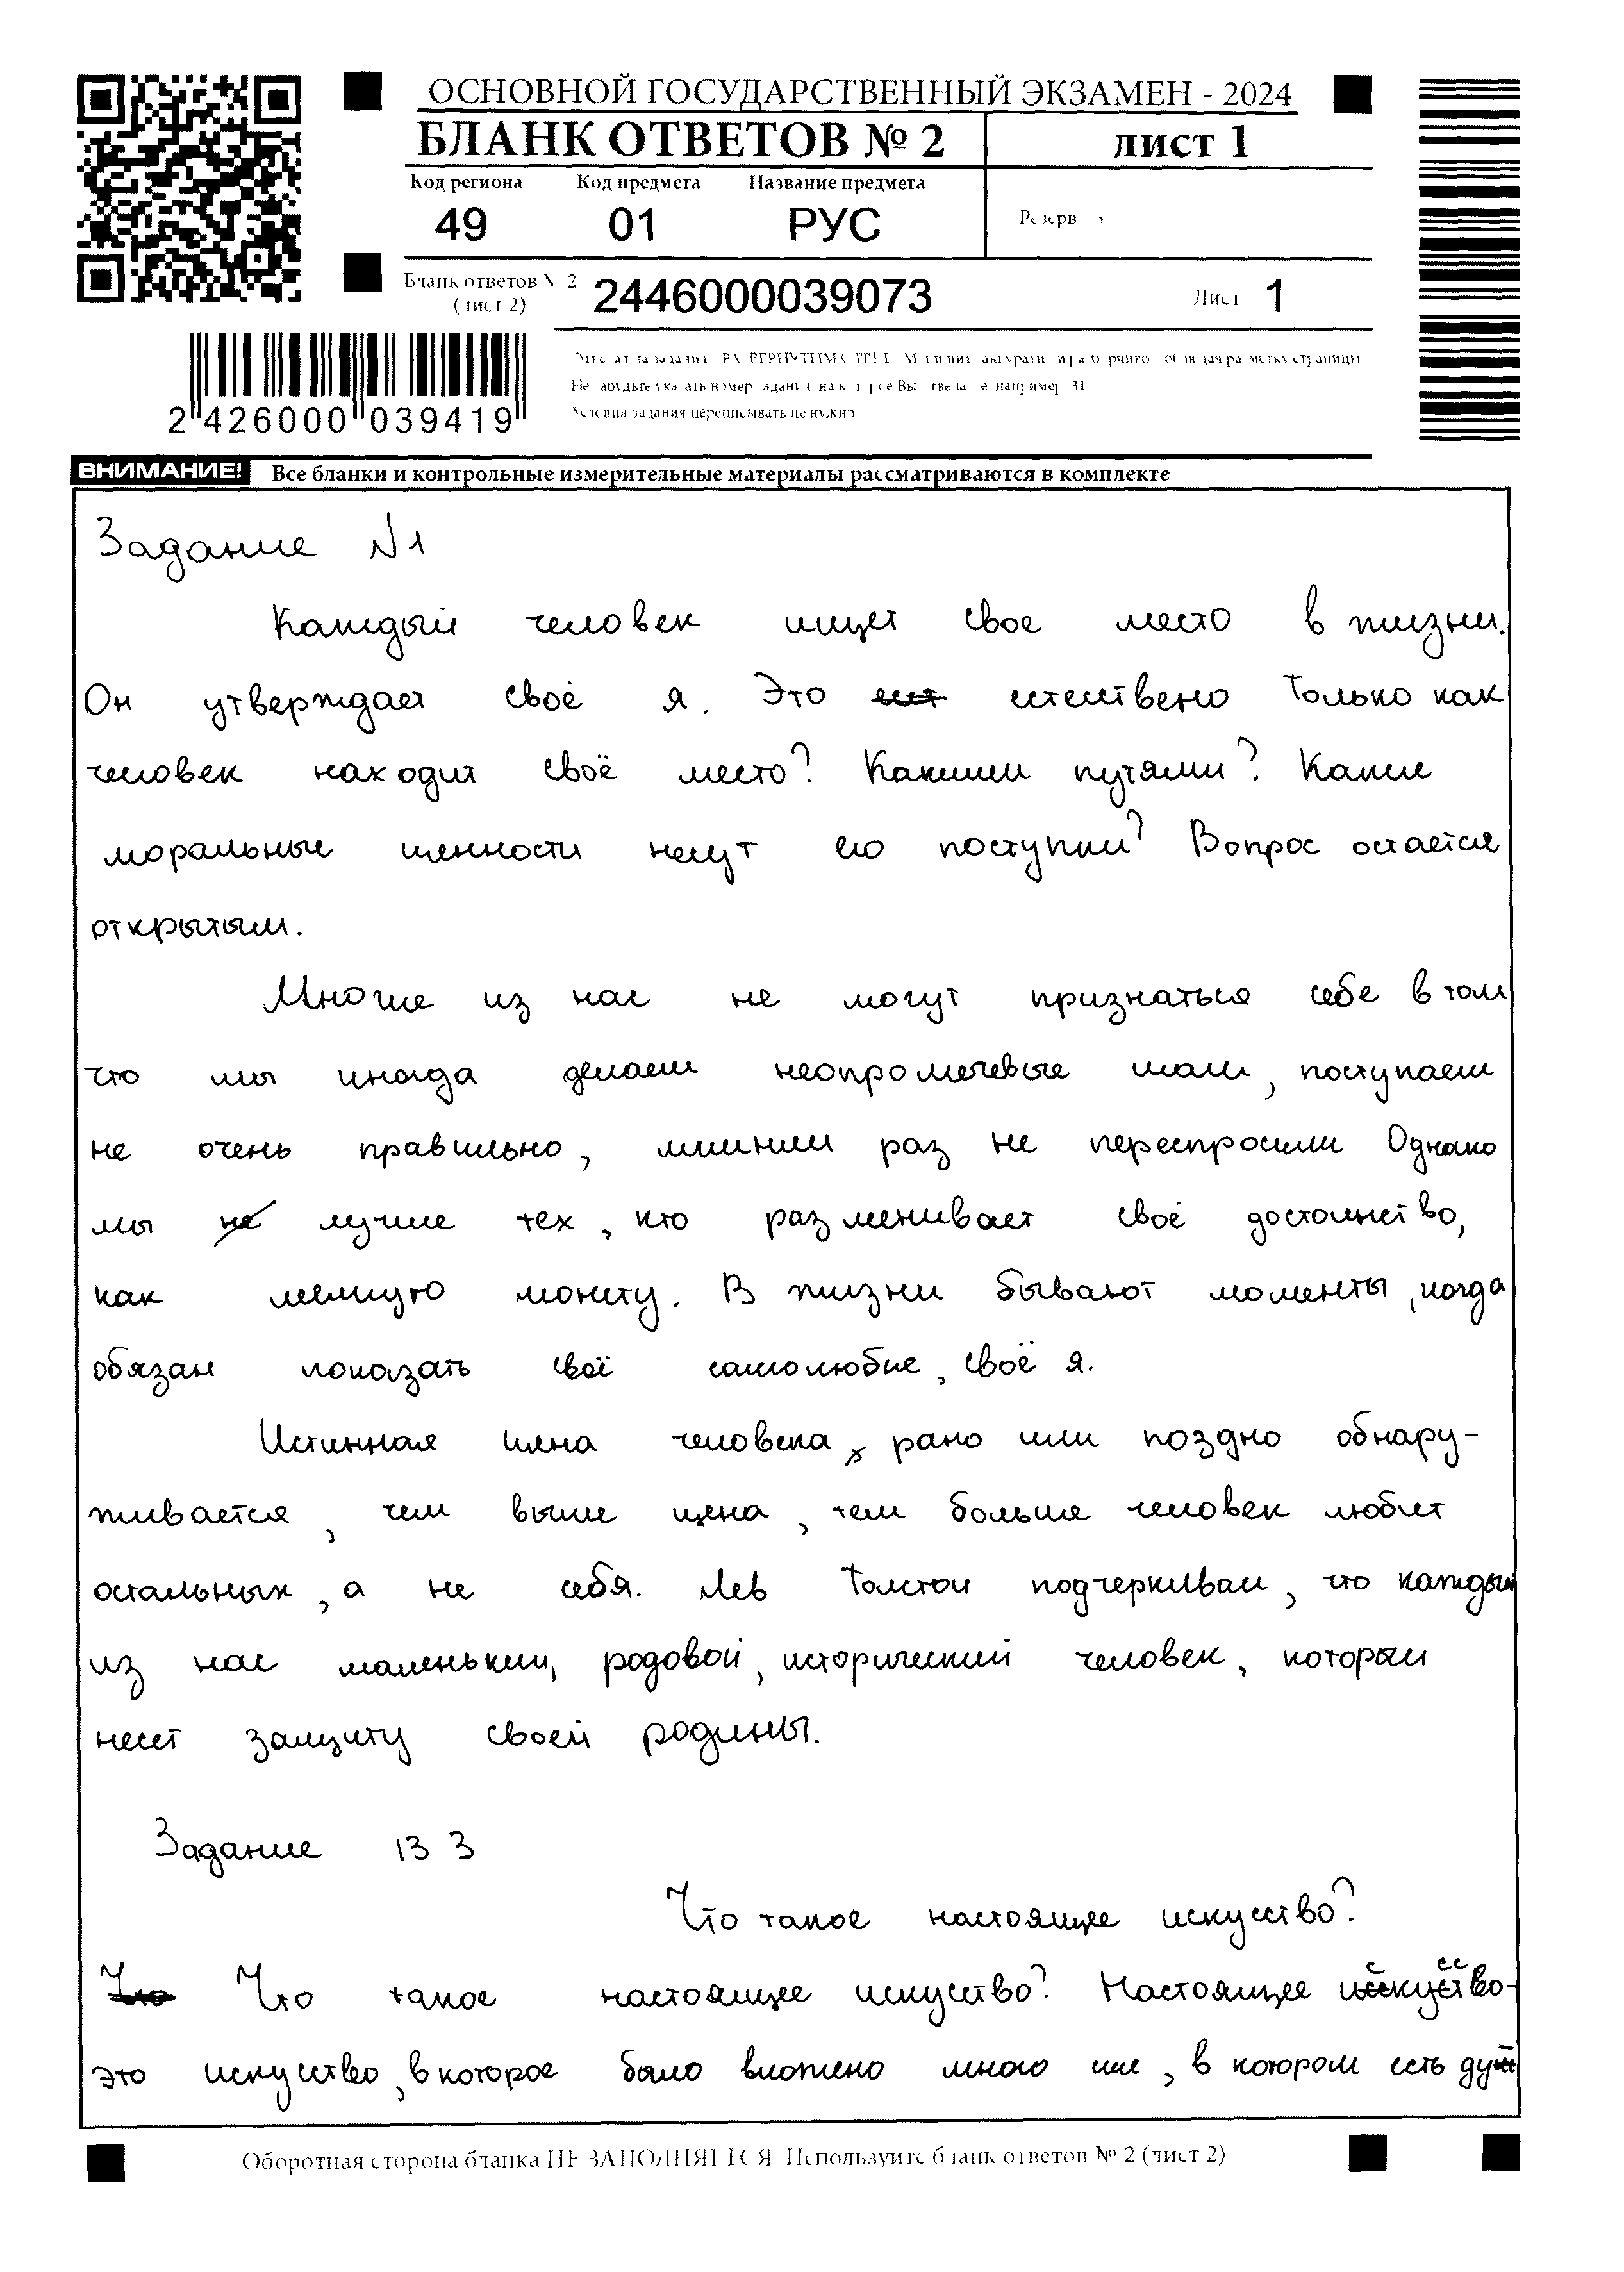 ОСНОВНОЙ ГОСУДАРСТВЕННЫЙ ЭКЗАМЕН - 2024
БЛАНК ОТВЕТОВ № 2
лист 1
Код региона Код предмета Название предмета
49 01 РУС
Резерв
Бланк ответов № 2
(лист 2)
2446000039073
Лист 1
2 426000 039419
Условия задания переписывать не нужно
ВНИМАНИЕ! Все бланки и контрольные измерительные материалы рассматриваются в комплекте
Задание №1
Каждый человек ищет свое место в жизни.
Он утверждает своё я. Это естествено Только как
человек находит своё место? Какими путями? Какие
моральные ценности несут его поступки? Вопрос остаётся
открытым.
Многие из нас не могут признаться себе в том
что мы иногда делаем неопрометчевые шаги, поступаем
не очень правильно, лишний раз не переспросили Однако
мы не лучше тех, кто разменивает своё достоинство,
как мелкую монету. В жизни бывают моменты, когда
обязан показать своё самолюбие, своё я.
Истинная цена человека, рано или поздно обнару-
живается, чем выше цена, тем больше человек любит
остальных, а не себя. Лев Толстой подчеркивал, что каждый
из нас маленький, родовой, исторический человек, который
несет защиту своей родины.
Задание 13 3
Что такое настоящее искусство?
Что Что такое настоящее искусство? Настоящее искусство-
это искусство, в которое было вложено много сил, в котором есть
Оборотная сторона бланка НЕ ЗАПОЛНЯЕТСЯ Используйте бланк ответов № 2 (лист 2)